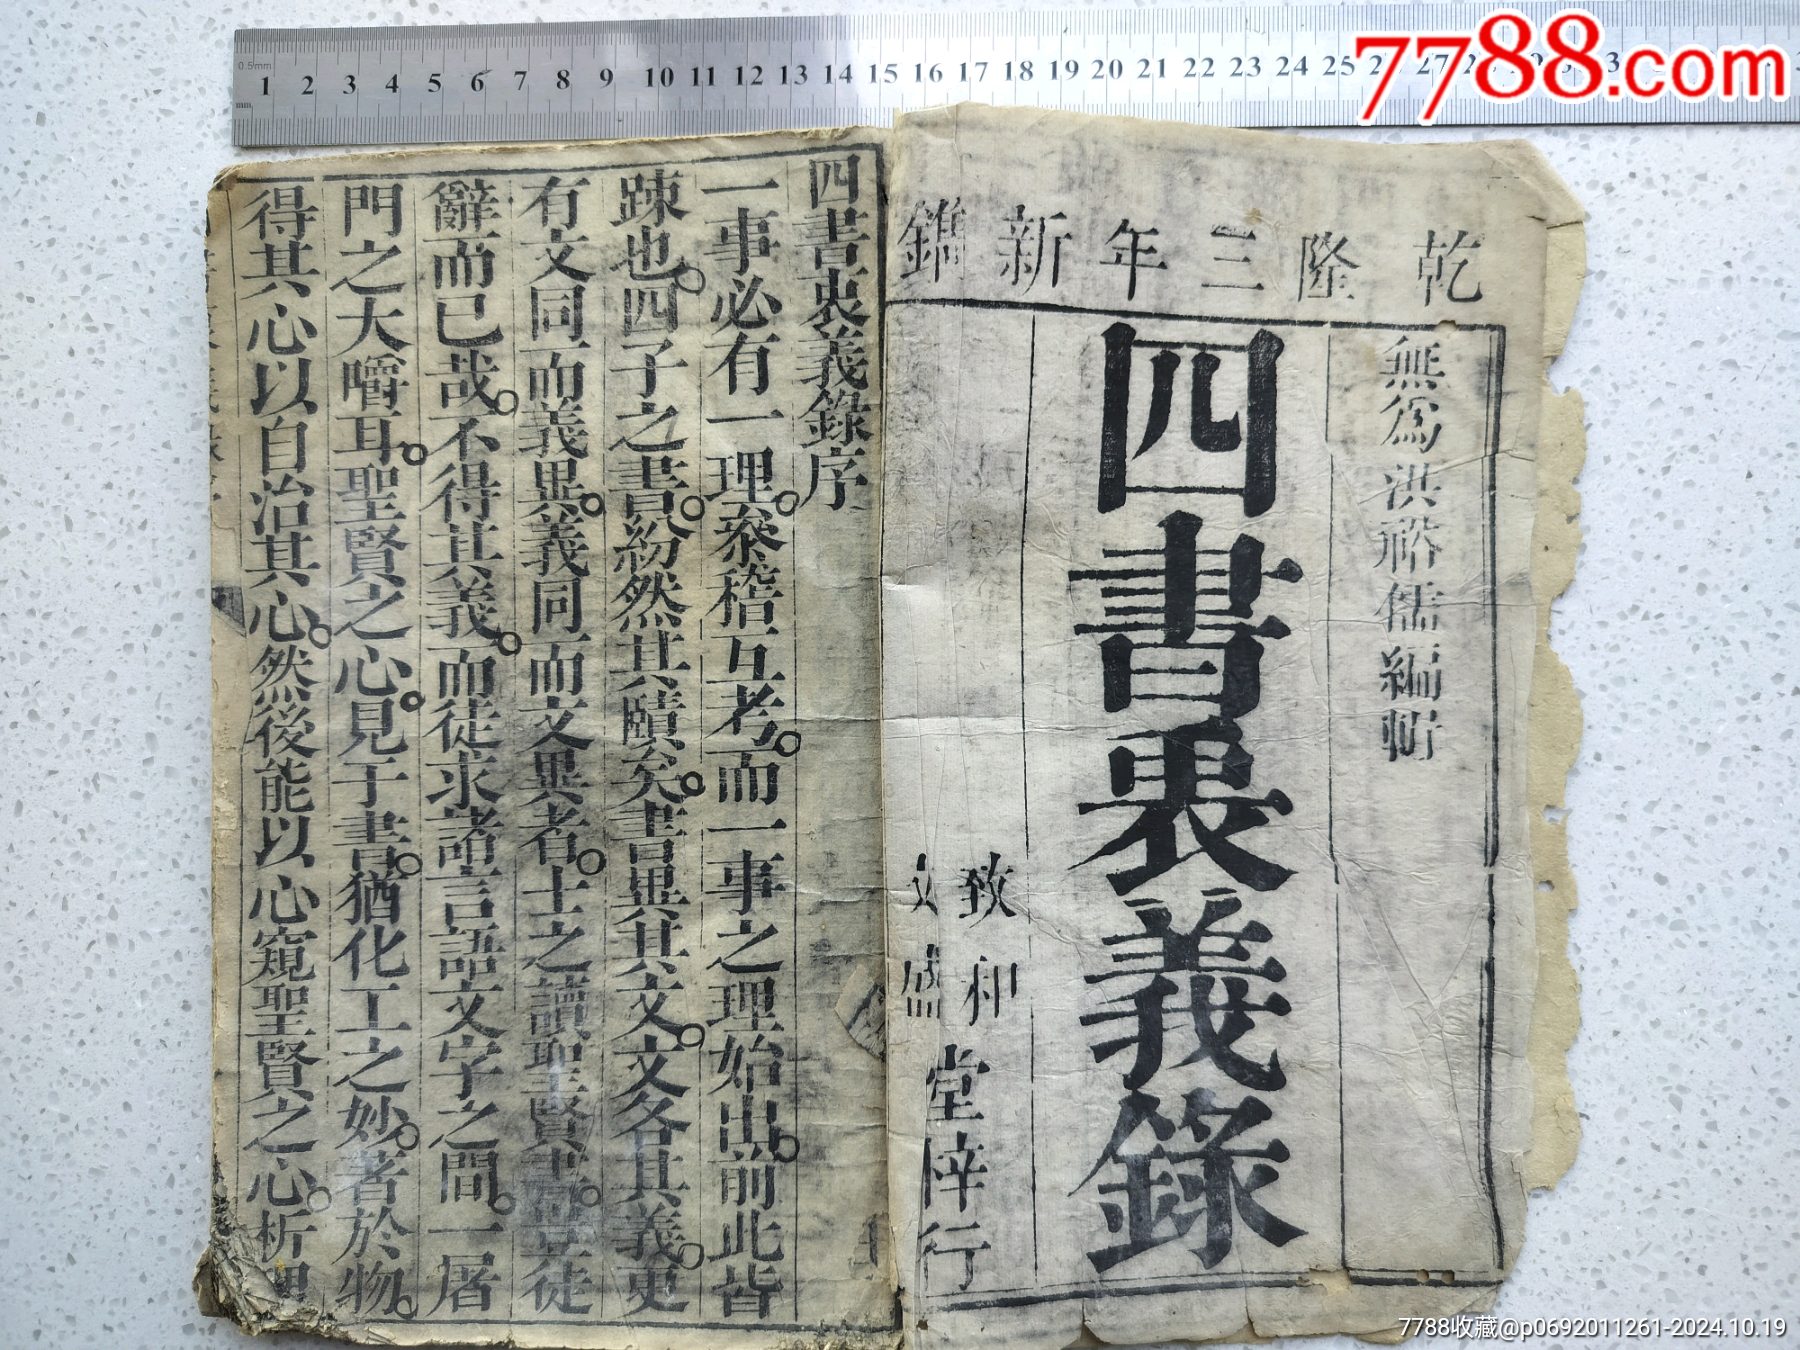 0.5mm
1 2 3 4 5 6 7 8 9 10 11 12 13 14 15 16 17 18 19 20 21 22 23 24 25
7788.com
乾隆三年新鐫
無為洪裕儒編輯
四書衷義錄
致和堂梓行
文盛
四書衷義錄序
一事必有一理叅稽互考而一事之理始出前此皆
踈也四子之書紛然其賾矣書異其文文各其義更
有文同而義異義同而文異者士之讀聖賢書豈徒
辭而已哉不得其義而徒求諸言語文字之間一屠
門之大嚼耳聖賢之心見于書猶化工之妙著於物
得其心以自治其心然後能以心窺聖賢之心析理
7788收藏@p0692011261-2024.10.19